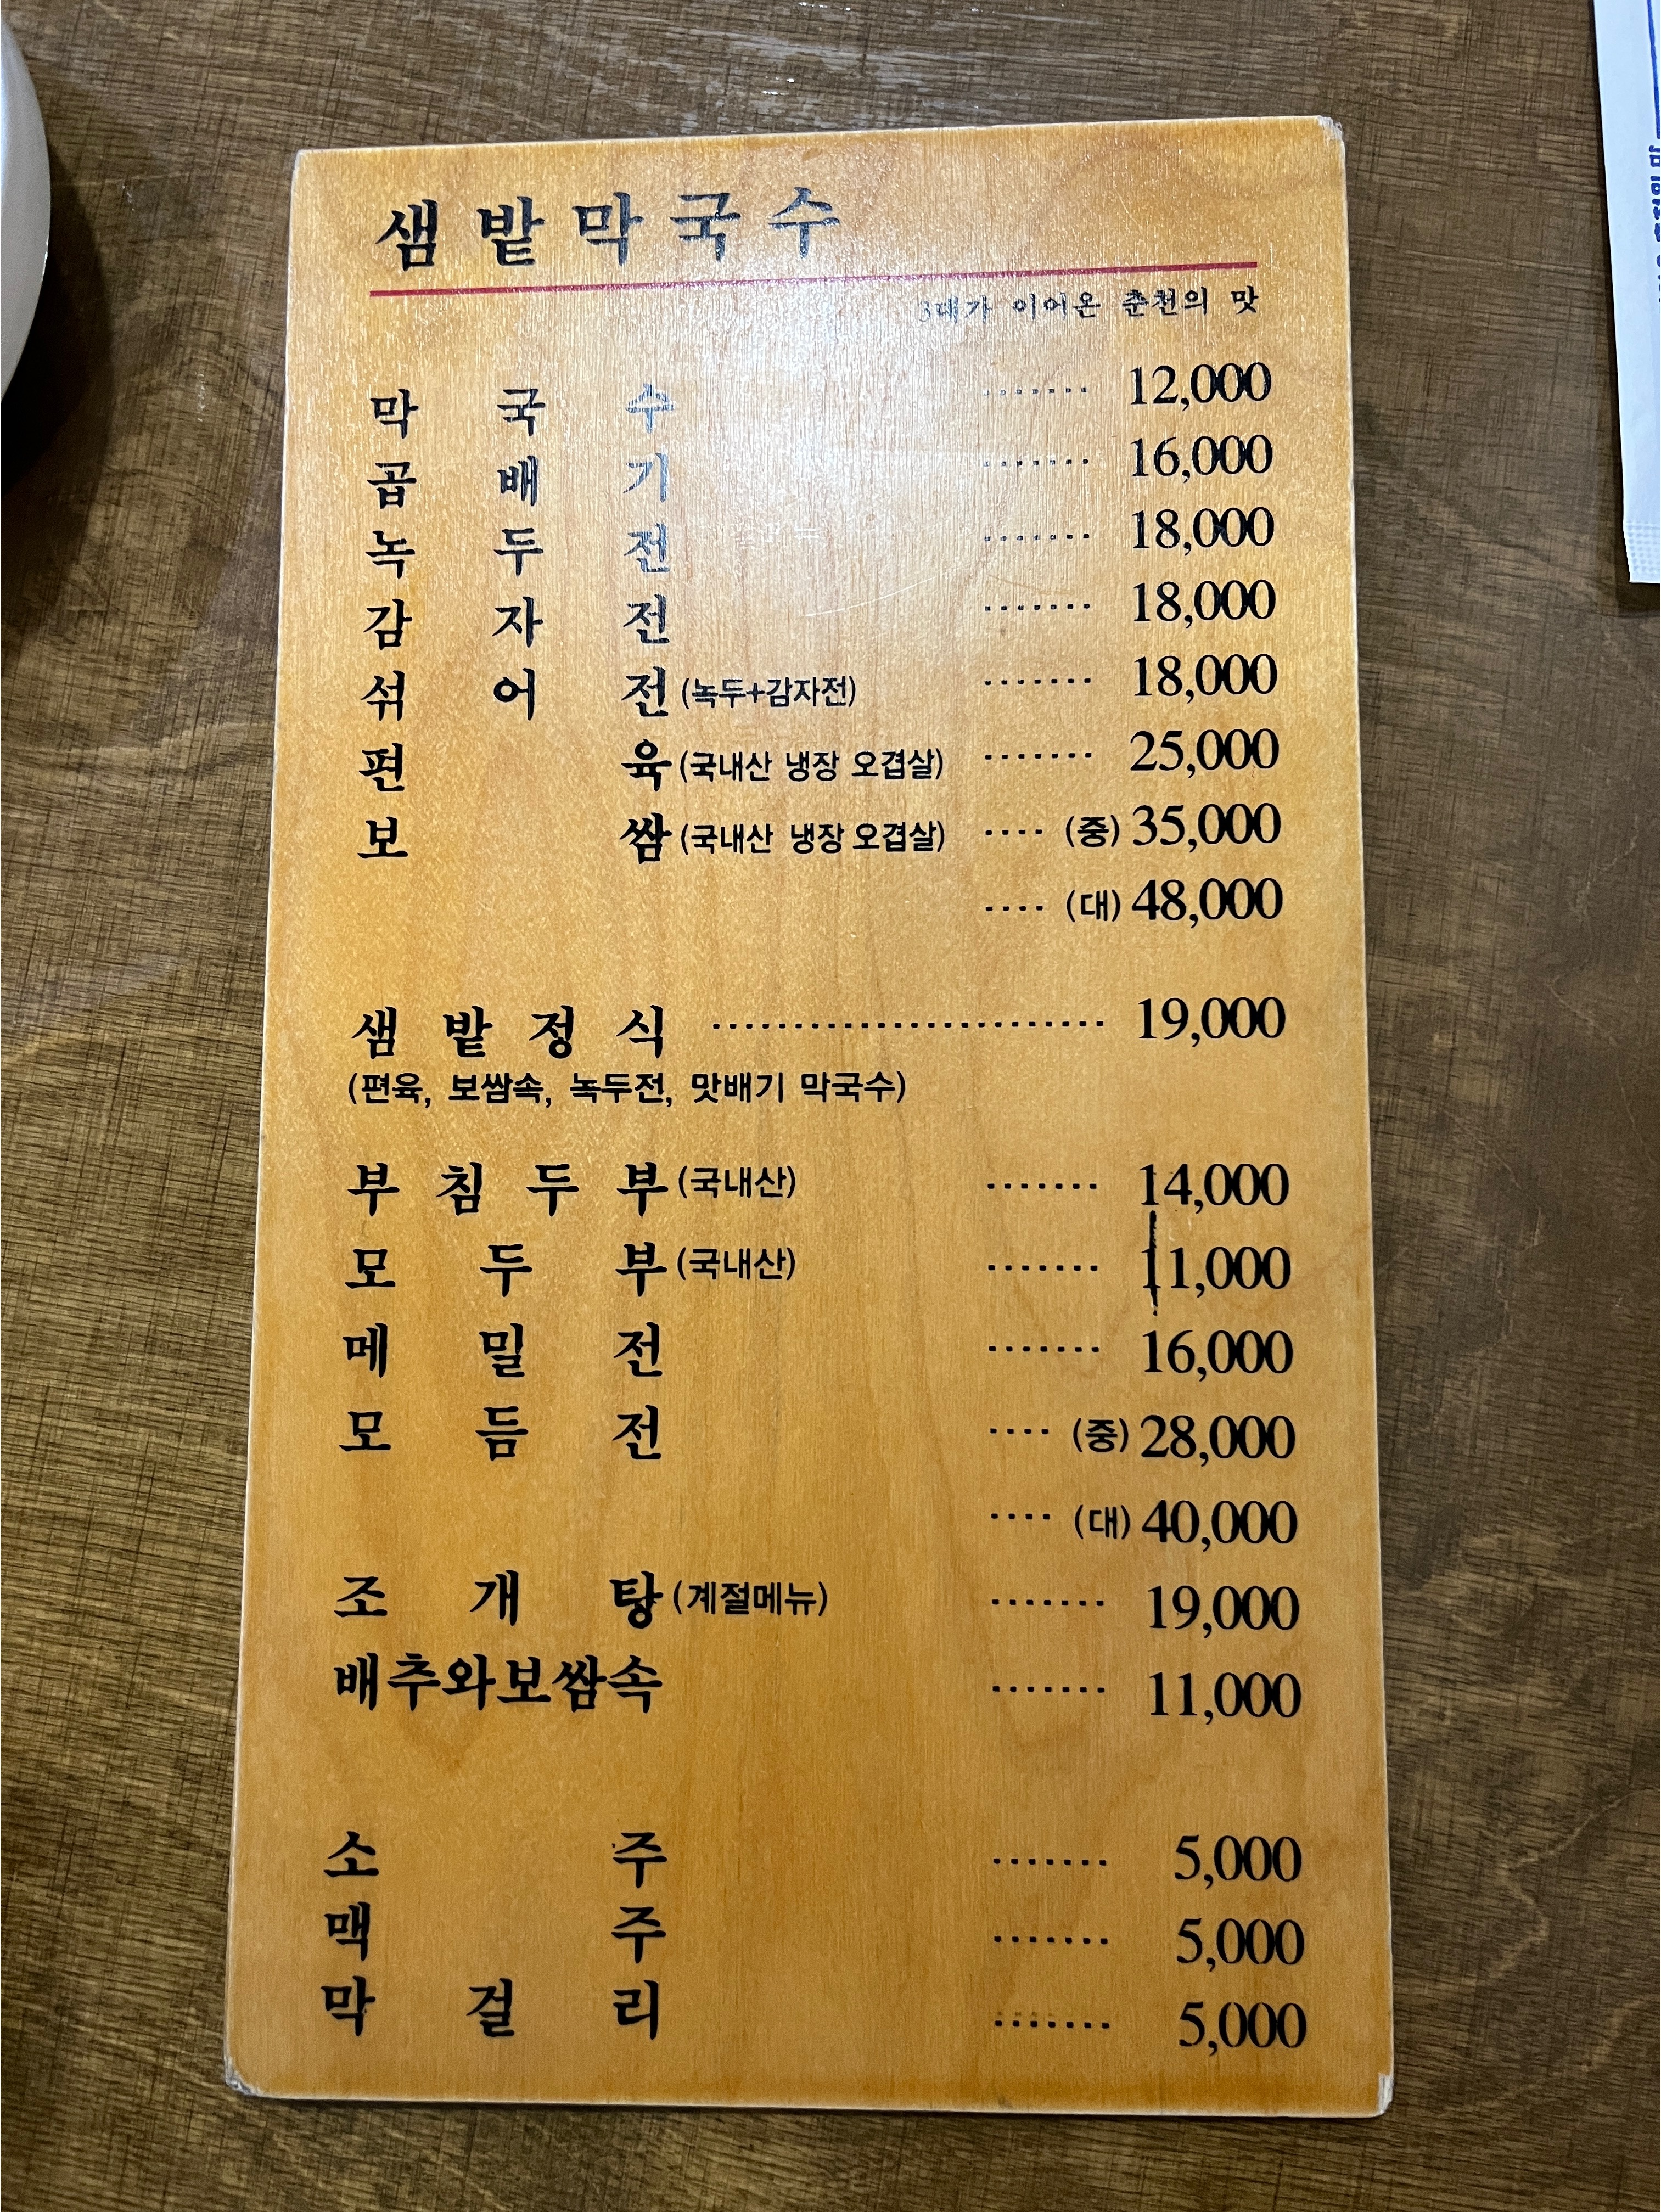 샘밭막국수
3대가 이어온 춘천의 맛
막국수 ······· 12,000
곱배기 ······· 16,000
녹두전 ······· 18,000
감자전 ······· 18,000
섞어전(녹두+감자전) ······· 18,000
편육(국내산 냉장 오겹살) ······· 25,000
보쌈(국내산 냉장 오겹살) ···· (중) 35,000
···· (대) 48,000
샘밭정식 ························ 19,000
(편육, 보쌈속, 녹두전, 맛배기 막국수)
부침두부(국내산) ······· 14,000
모두부(국내산) ······· 11,000
메밀전 ······· 16,000
모듬전 ···· (중) 28,000
···· (대) 40,000
조개탕(계절메뉴) ······· 19,000
배추와보쌈속 ······· 11,000
소주 ······· 5,000
맥주 ······· 5,000
막걸리 ······· 5,000